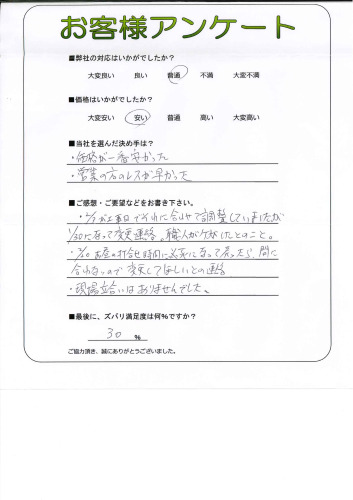 お客様アンケート
■弊社の対応はいかがでしたか？
大変良い 良い 普通 不満 大変不満
■価格はいかがでしたか？
大変安い 安い 普通 高い 大変高い
■当社を選んだ決め手は？
・価格が一番安かった
・営業の方のレスが早かった
■ご感想・ご要望などをお書き下さい。
・ 工事日でそれに合わせて調整していましたが
1/30になって変更連絡。職人がケガしたとのこと。
・ お昼の打合せ時間に なって 間に
合わないので変更してほしいとの連絡
・現場立合いはありませんでした。
■最後に、ズバリ満足度は何%ですか？
30 %
ご協力頂き、誠にありがとうございました。